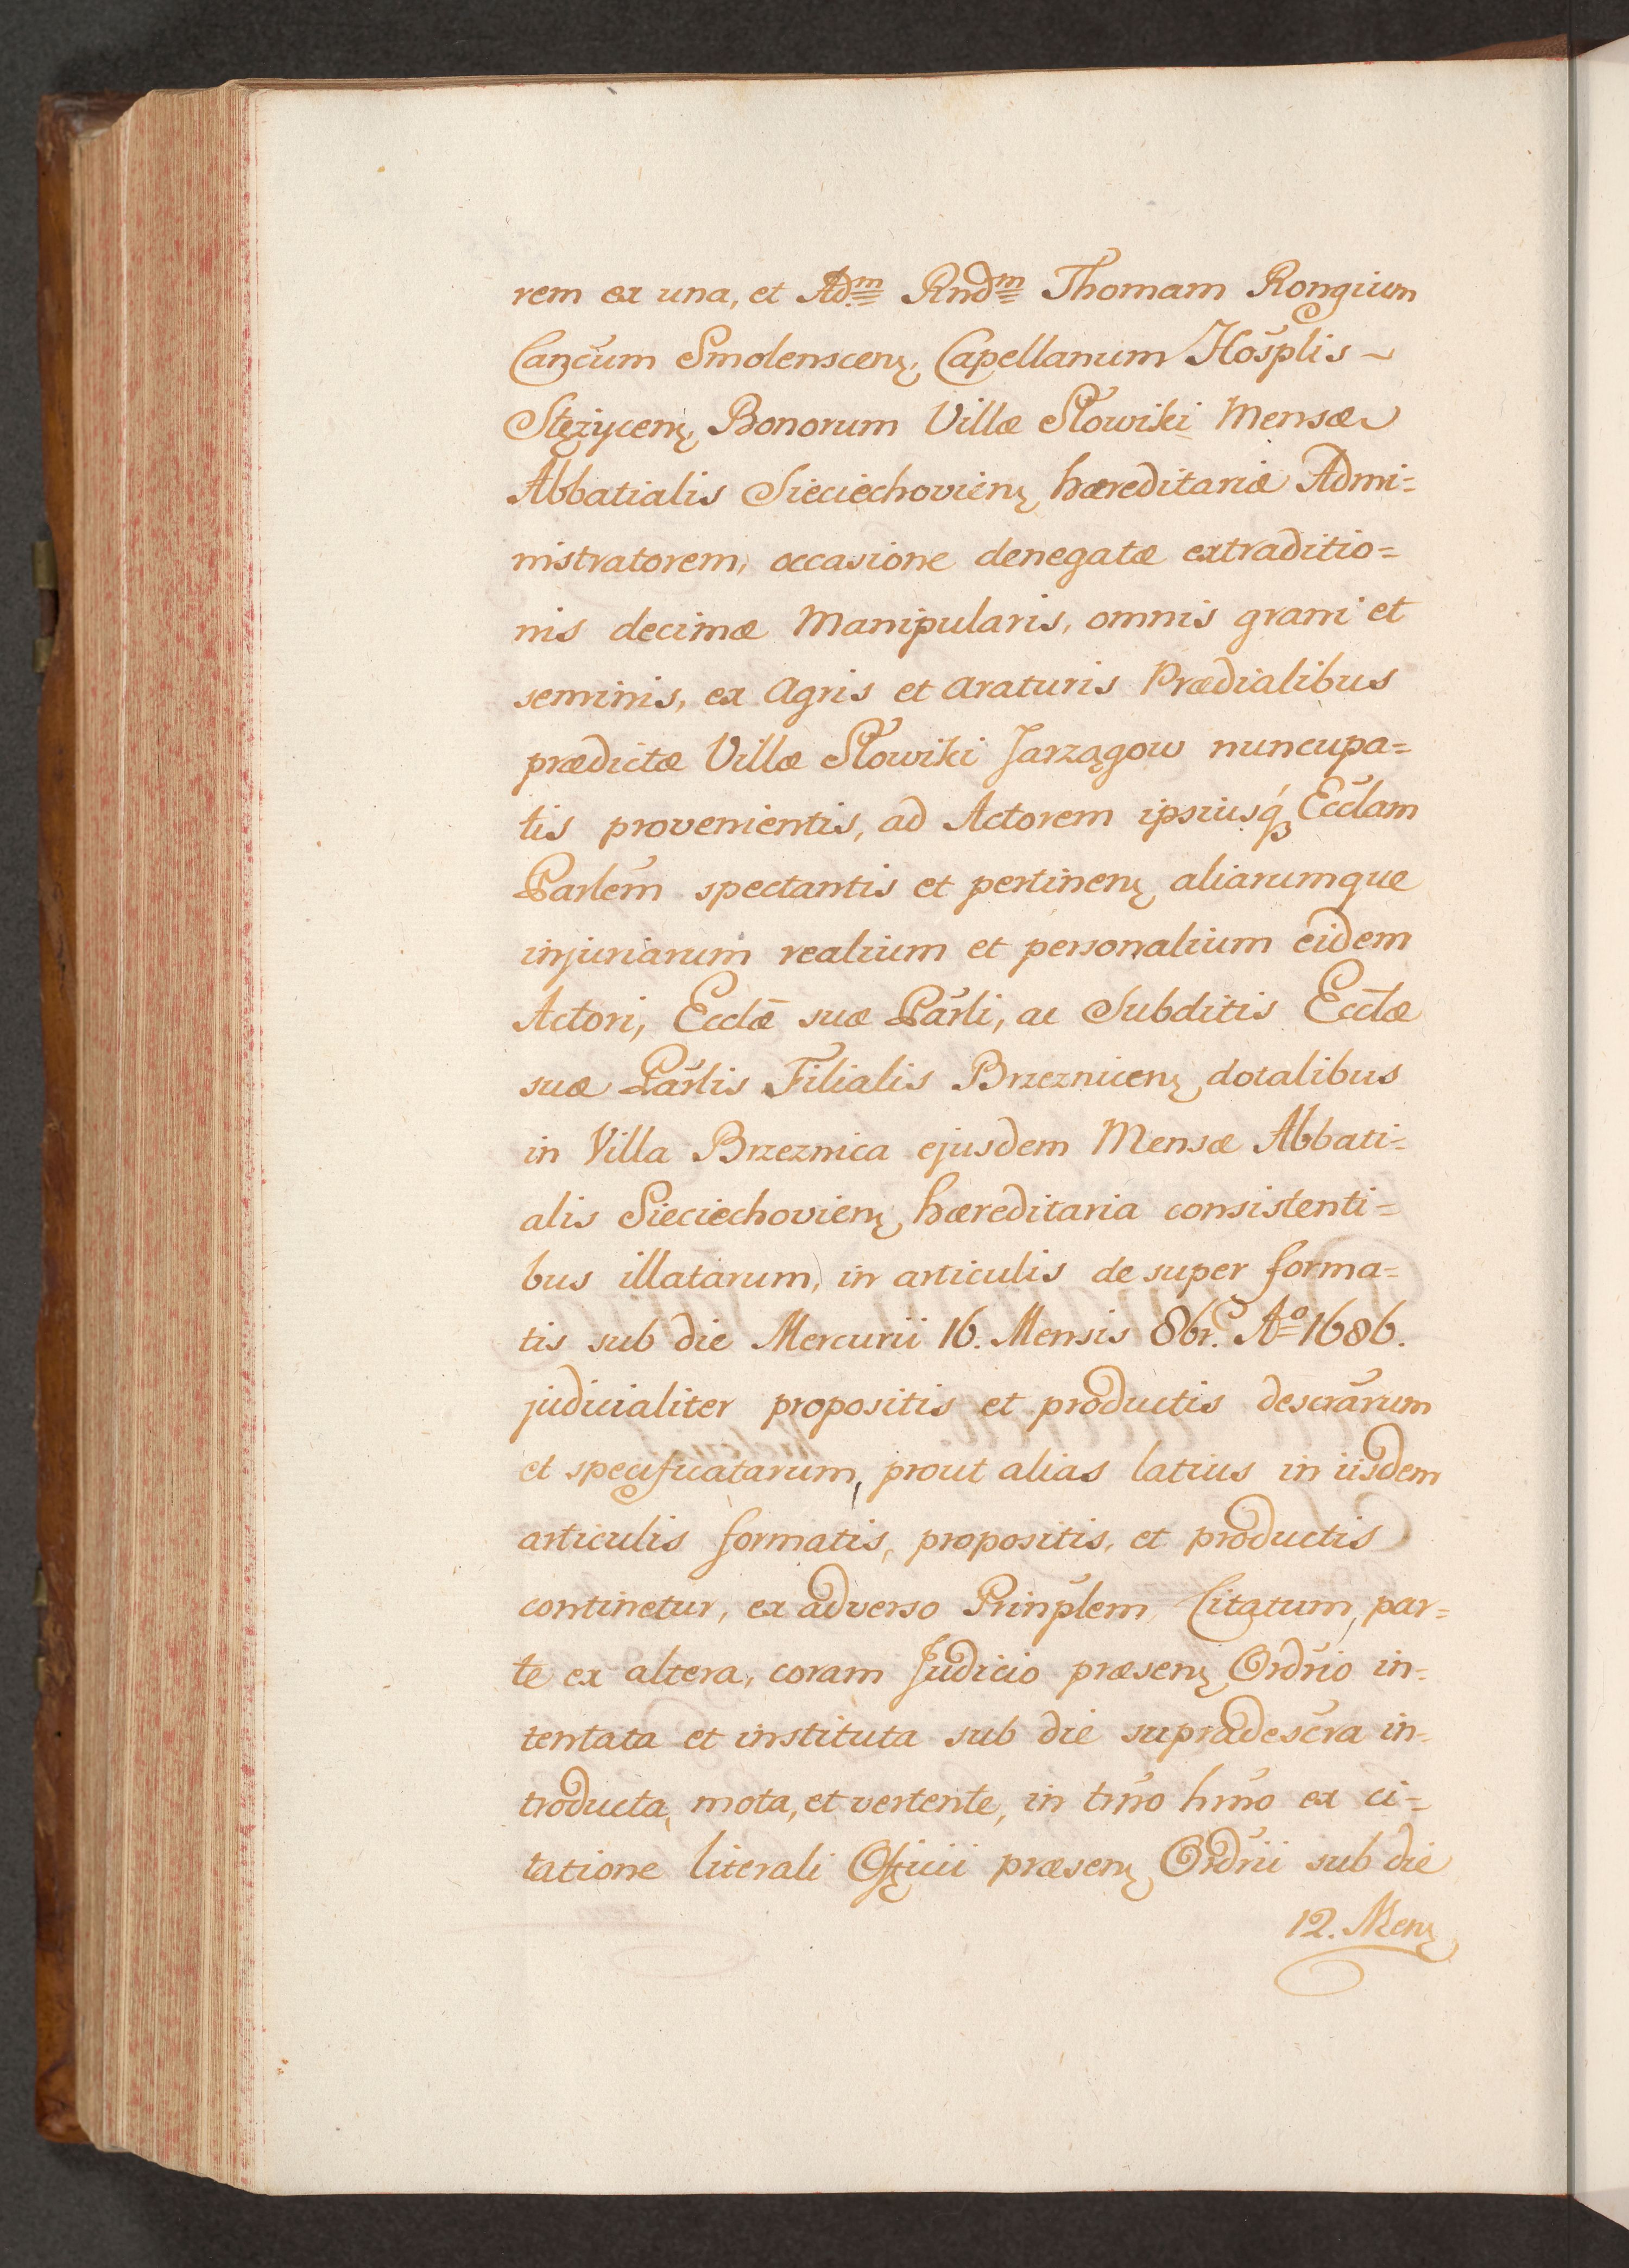 rem ex una, et Adm̳ Rndm̳ Thomam Rongium
Cancum Smolenscenę, Capellanum Hosplis ~
Stężycenę, Bonorum Villæ Słowiki Mensæ
Abbatialis Sieciechovienę hæreditariæ Admi=
nistratorem, occasione denegatæ extraditio=
nis decimæ Manipularis, omnis grani et
seminis, ex Agris et Araturis Prædialibus
prædictæ Villæ Słowiki Jarzągow nuncupa=
tis provenientis, ad Actorem ipsiusq́ʒ Eccłam
Parlem̄ spectantis et pertinenę aliarumque
injuriarum realium et personalium eidem
Actori, Ecclǣ suæ Pārli, ac Subditis Eccłæ
suæ Pārlis Filialis Brzeznicenę dotalibus
in Villa Brzeznica ejusdem Mensæ Abbati=
alis Sieciechovienę hæreditaria consistenti=
bus illatarum, in articulis de super forma=
tis sub die Mercurii 16. Mensis 8br̄. Aº 1686.
judicialiter propositis et productis descrārum
et specificatarum, prout alias latius in iisdem
articulis formatis, propositis, et productis
continetur, ex adverso Prinp̄lem Citatum, par=
te ex altera, coram Judicio præsenę Ordrio in=
tentata et instituta sub die supradescra in=
troducta, mota, et vertente, in tm̄o hm̄o ex ci=
tatione literali Officii præsenę Ordrii sub die
12. Menę